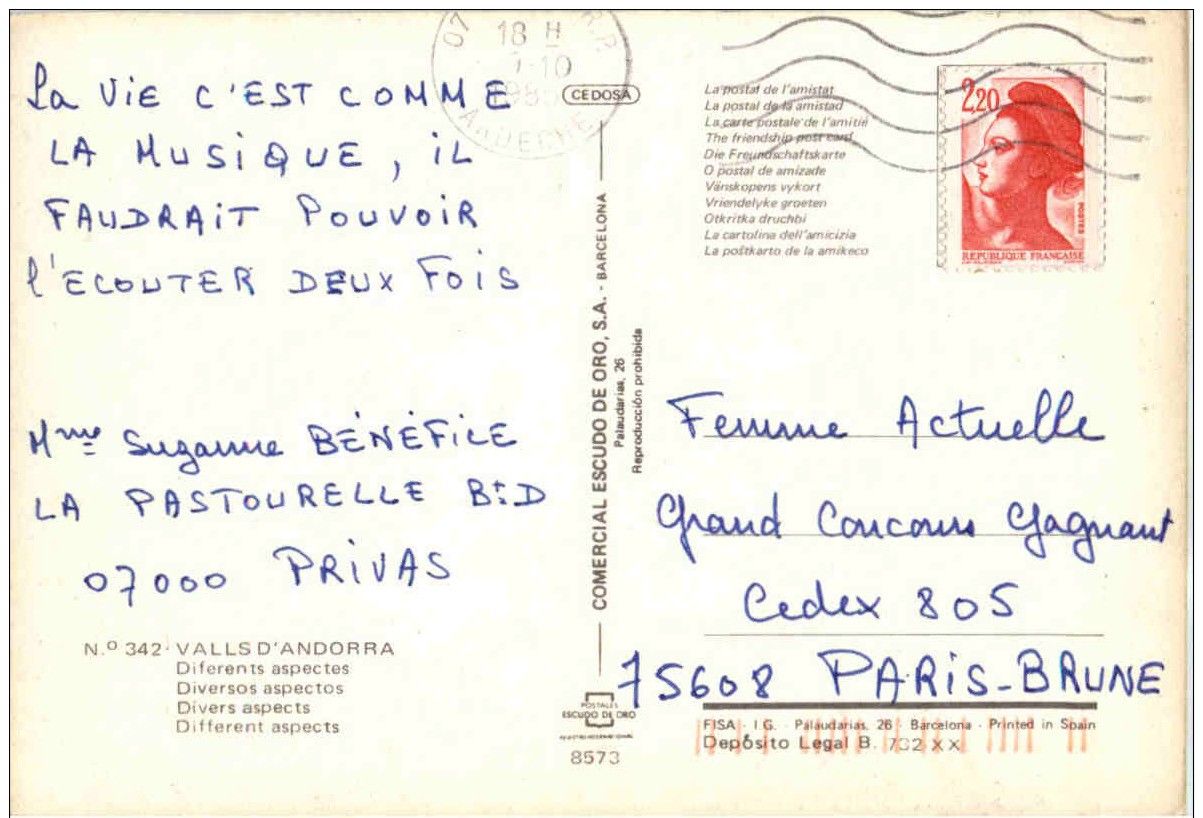 La VIE C'EST COMME
LA MUSIQUE, IL
FAUDRAIT POUVOIR
l'ECOUTER DEUX FOIS
Mme Suzanne BÉNÉFICE
LA PASTOURELLE Bt D
07000 PRIVAS
N.º 342 · VALLS D'ANDORRA
Diferents aspectes
Diversos aspectos
Divers aspects
Different aspects
07 R.P.
18 H
7-10
1985
ARDECHE
CEDOSA
COMERCIAL ESCUDO DE ORO, S.A. - BARCELONA
Palaudarias, 26
Reproducción prohibida
POSTALES
ESCUDO DE ORO
8573
La postal de l'amistat
La postal de la amistad
La carte postale de l'amitié
The friendship post card
Die Freundschaftskarte
O postal de amizade
Vänskopens vykort
Vriendelyke groeten
Otkritka druchbi
La cartolina dell'amicizia
La poŝtkarto de la amikeco
2,20
POSTES
REPUBLIQUE FRANÇAISE
Femme Actuelle
Grand Concours Gagnant
Cedex 805
75608 PARIS-BRUNE
FISA - I.G. - Palaudarias, 26 - Barcelona - Printed in Spain
Depósito Legal B. 732 XX